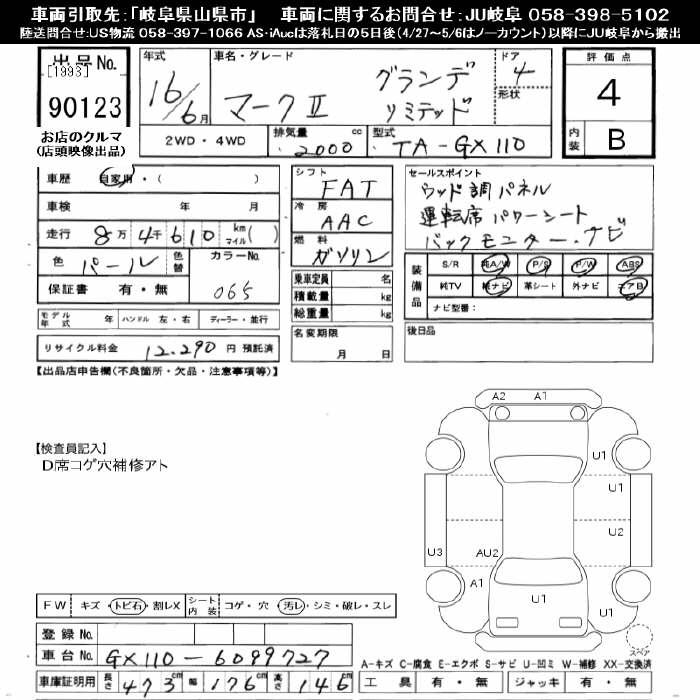 車両引取先:「岐阜県山県市」 車両に関するお問合せ:JU岐阜 058-398-5102
陸送問合せ:US物流 058-397-1066 AS・iAucは落札日の5日後(4/27~5/6はノーカウント)以降にJU岐阜から搬出
出品No.
[1993]
90123
お店のクルマ
(店頭映像出品)
年式 車名・グレード ドア
16/6月 マークⅡ グランデ リミテッド 4
形状
2WD・4WD 排気量 2000 cc 型式 TA-GX110
評価点
4
内装 B
車歴 自家用・( )
車検 年 月
走行 8万4千610 km マイル( )
色 パール 色替 カラーNo. 065
保証書 有・無
モデル年式 年 ハンドル 左・右 ディーラー・並行
リサイクル料金 12,290 円 預託済
シフト FAT
冷房 AAC
燃料 ガソリン
乗車定員 名
積載量 kg
総重量 kg
名変期限
月 日
セールスポイント
ウッド調パネル
運転席パワーシート
バックモニター・ナビ
装備品 S/R 純A/W P/S P/W ABS
純TV 純ナビ 革シート 外ナビ エアB
ナビ型番:
後日品
【出品店申告欄(不良箇所・欠品・注意事項等)】
【検査員記入】
D席コゲ穴補修アト
A2 A1
U1
U1
U2
U3 AU2
A1 U1
スペア
FW キズ・トビ石・割レX シート内装 コゲ・穴・汚レ・シミ・破レ・スレ
登録No.
車台No. GX110-6099727
車庫証明用 長さ 473cm 幅 176cm 高さ 146cm
A-キズ C-腐食 E-エクボ S-サビ U-凹ミ W-補修 XX-交換済
工具 有・無 ジャッキ 有・無